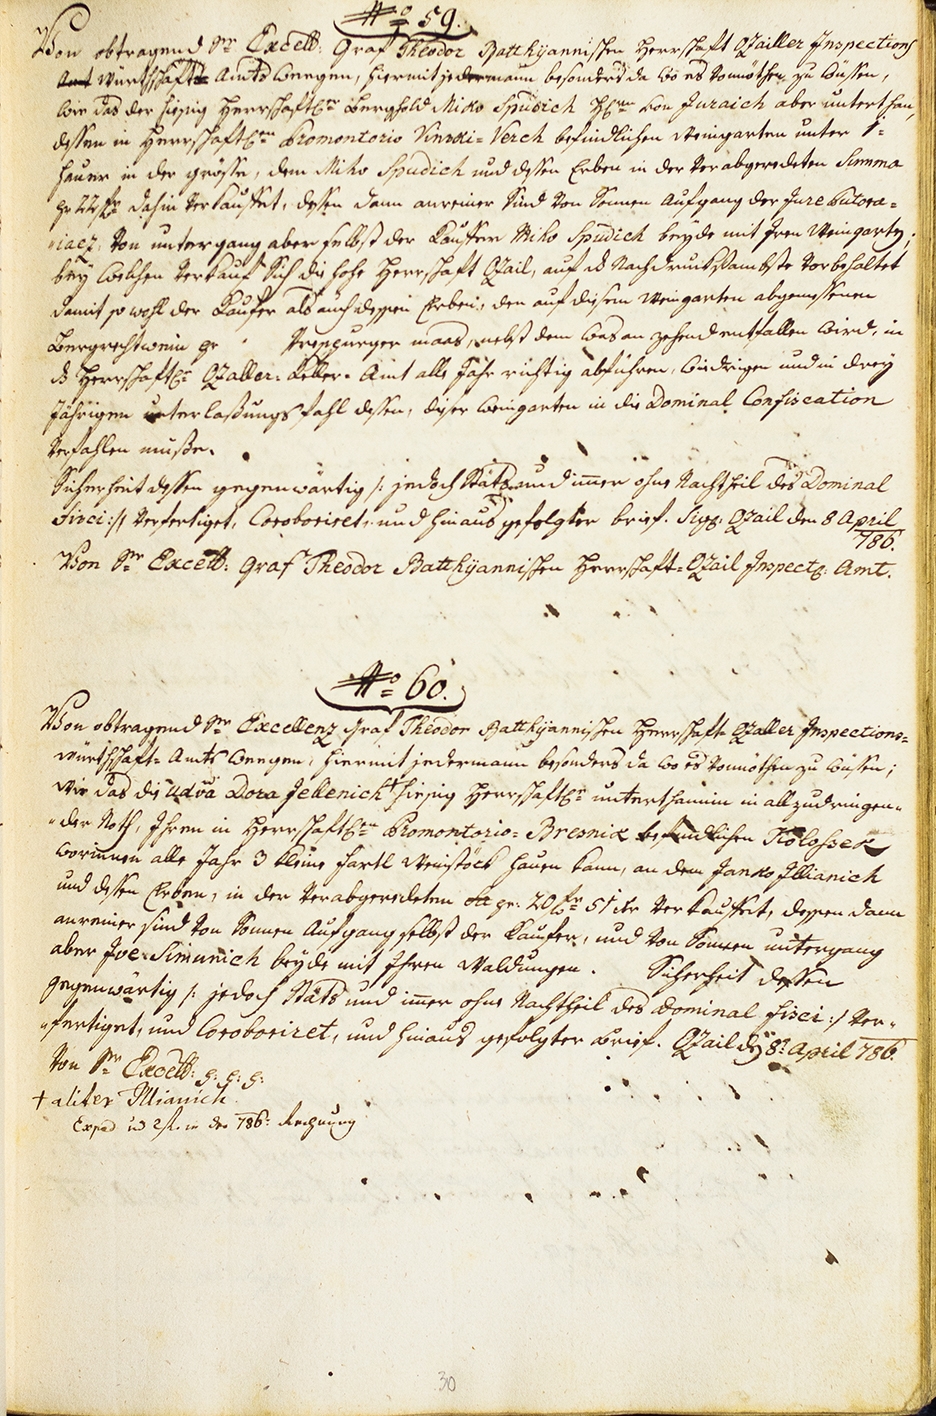 No 59.
Von obtragend Sr Excell: Graf Theodor Batthÿannischen Herrschaft Ozailler Inspections
Amt Würthschafts Amts weegen, hiermit jedermann besonders da wo es vonnöthen zu wüssen,
wie das der hiesig Herrschaftl: Berghold Miko Spudich von Juraich aber unterthan,
dessen in Herrschaftl: Promontorio Vinski-Verch befindlichen Weingarten unter 1-
hauer in der grösse, dem Miko Spudich und dessen Erben in der verabgeredeten Summa
pr 22 fr dahin verkauffet, dessen dann anreiner sind von Sonnen Aufgang der Jure
von untergang aber selbst der Kauffer Miko Spudich beyde mit Iren Weingarten;
bey welchen verkauf Sich die hohe Herrschaft Ozail, auf das Nachdruksambste vorbehaltet
damit so wohl der Kaufer als auch dessen Erben, den auf diesem Weingarten abgemessenen
Bergrechtwein pr Prespurger maas, nebst dem was an zehend entfallen wird, in
das Herrschaftl: Ozailler Keller-Amt alle Jahr richtig abführen, widrigen und in drey
Jährigen unterlaßungs fahl dessen, diser Weingarten in die Dominal Confiscation
verfahlen muße.
Sicherheit dessen gegenwärtig /: jedoch stäts und immer ohne Nachtheil des Dominal
Fisci :/ verfertiget, Coroboriret, und hinaus gefolgter brief. Sign: Ozail den 8 April
786.
Von Sr Excell: Graf Theodor Batthÿannischen Herrschaft-Ozail Inspect: Amt.
No 60.
Von obtragend Sr Excellenz Graf Theodor Batthÿannischen Herrschaft Ozaller Inspections-
Würthschaft-Amts weegen, hiermit jedermann besonders da wo es vonnöthen zu wüssen;
Wie das die Udva Dora Jellenich+ hiesig Herrschaftl: unterthannin in all zudringen-
der Noth, Ihren in Herrschaftl: Promontorio-Bresnik befindlichen Kolosjek
worinnen alle Jahr 3 kleine Fartl Weinstöck hauen kann, an dem Janko Illianich
und dessen Erben, in der verabgeredeten pr: 20 fr 51 xr verkauffet, dessen dann
anreiner sind von Sonnen Aufgang selbst der Kaufer, und von Sonnen untergang
aber Ive Simunich beyde mit Ihren Waldungen. Sicherheit dessen
gegenwärtig /: jedoch stäts und immer ohne Nachtheil des Dominal Fisci :/ ver-
fertiget, und Coroboriret, und hinaus gefolgter brief. Ozail den 8t April 786.
Von Sr Excell:
+ aliter Illianich
in der 786: Rechnung
30